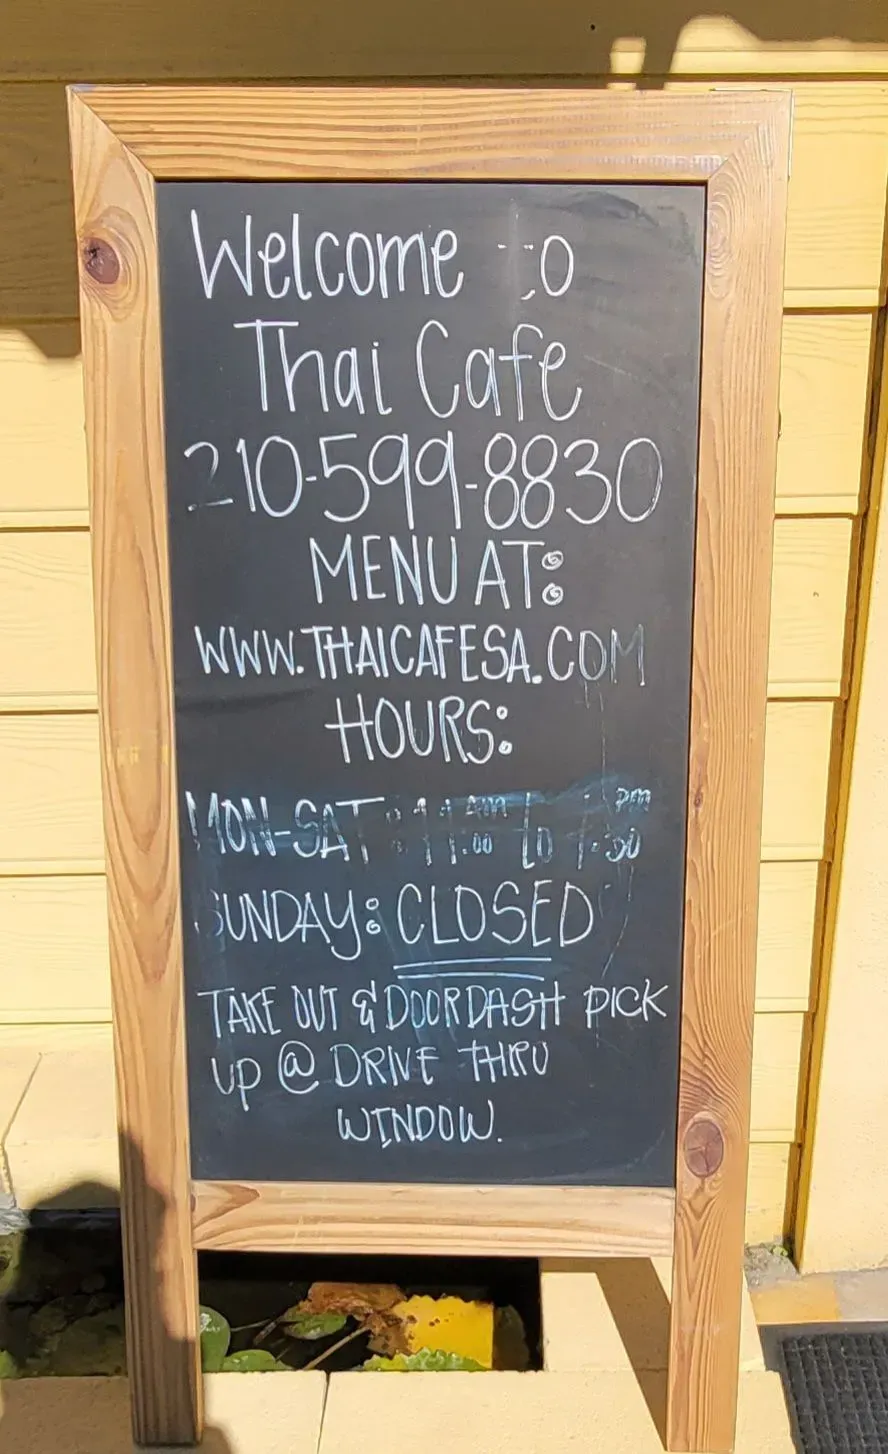 Welcome to
Thai Cafe
210-599-8830
MENU AT:
WWW.THAICAFESA.COM
HOURS:
MON-SAT: 11:00 AM to PM
SUNDAY: CLOSED
TAKE OUT & DOORDASH PICK
UP @ DRIVE THRU
WINDOW.